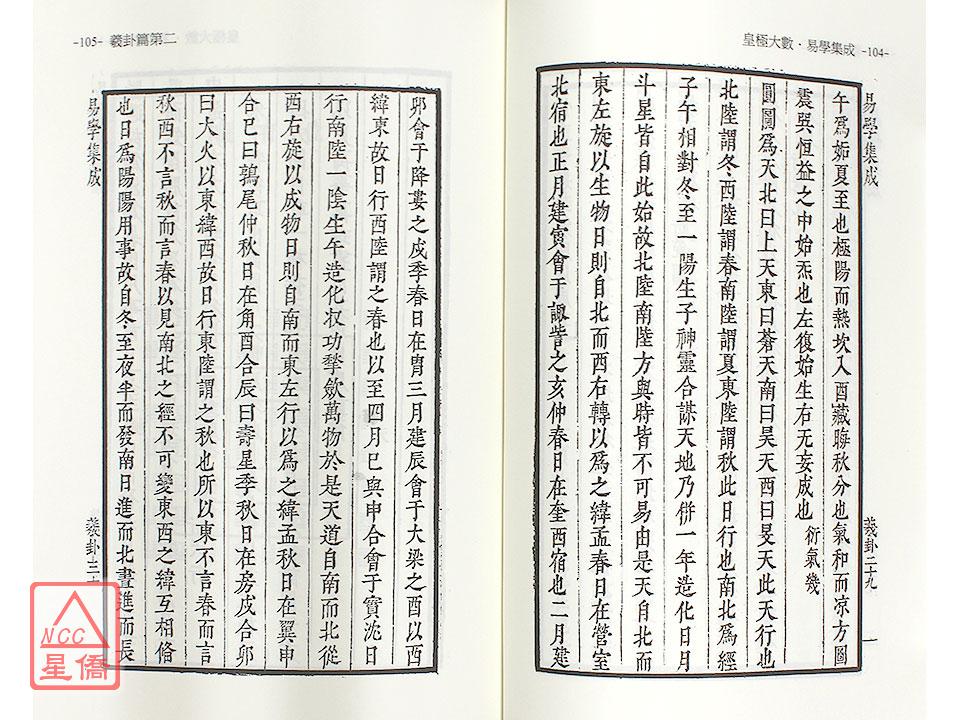 皇極大數．易學集成 -104-
易學集成
羲卦二十九
午為姤夏至也極陽而熱坎入酉藏聯秋分也氣和而凉方圖
震㢲恒益之中始炁也左復始生右无妄成也 衍氣幾
圓圖為天北曰上天東曰蒼天南曰昊天西曰旻天此天行也
北陸謂冬西陸謂春南陸謂夏東陸謂秋此日行也南北為經
子午相對冬至一陽生子神靈合謀天地乃併一年造化日月
斗星皆自此始故北陸南陸方與時皆不可易由是天自北而
東左旋以生物日則自北而西右轉以為之緯孟春日在營室
北宿也正月建寅會于諏訾之亥仲春日在奎西宿也二月建
-105- 羲卦篇第二
卯會于降婁之戍季春日在胃三月建辰會于大梁之酉以西
緯東故日行西陸謂之春也以至四月巳與申合會于實沈日
行南陸一陰生午造化収功拏歛萬物於是天道自南而北從
西右旋以成物日則自南而東左行以為之緯孟秋日在翼申
合巳曰鶉尾仲秋日在角酉合辰曰壽星季秋日在房戍合卯
曰大火以東緯西故日行東陸謂之秋也所以東不言春而言
秋西不言秋而言春以見南北之經不可變東西之緯互相脩
也日為陽陽用事故自冬至夜半而發南日進而北晝進而長
易學集成
羲卦三十
NCC
星僑